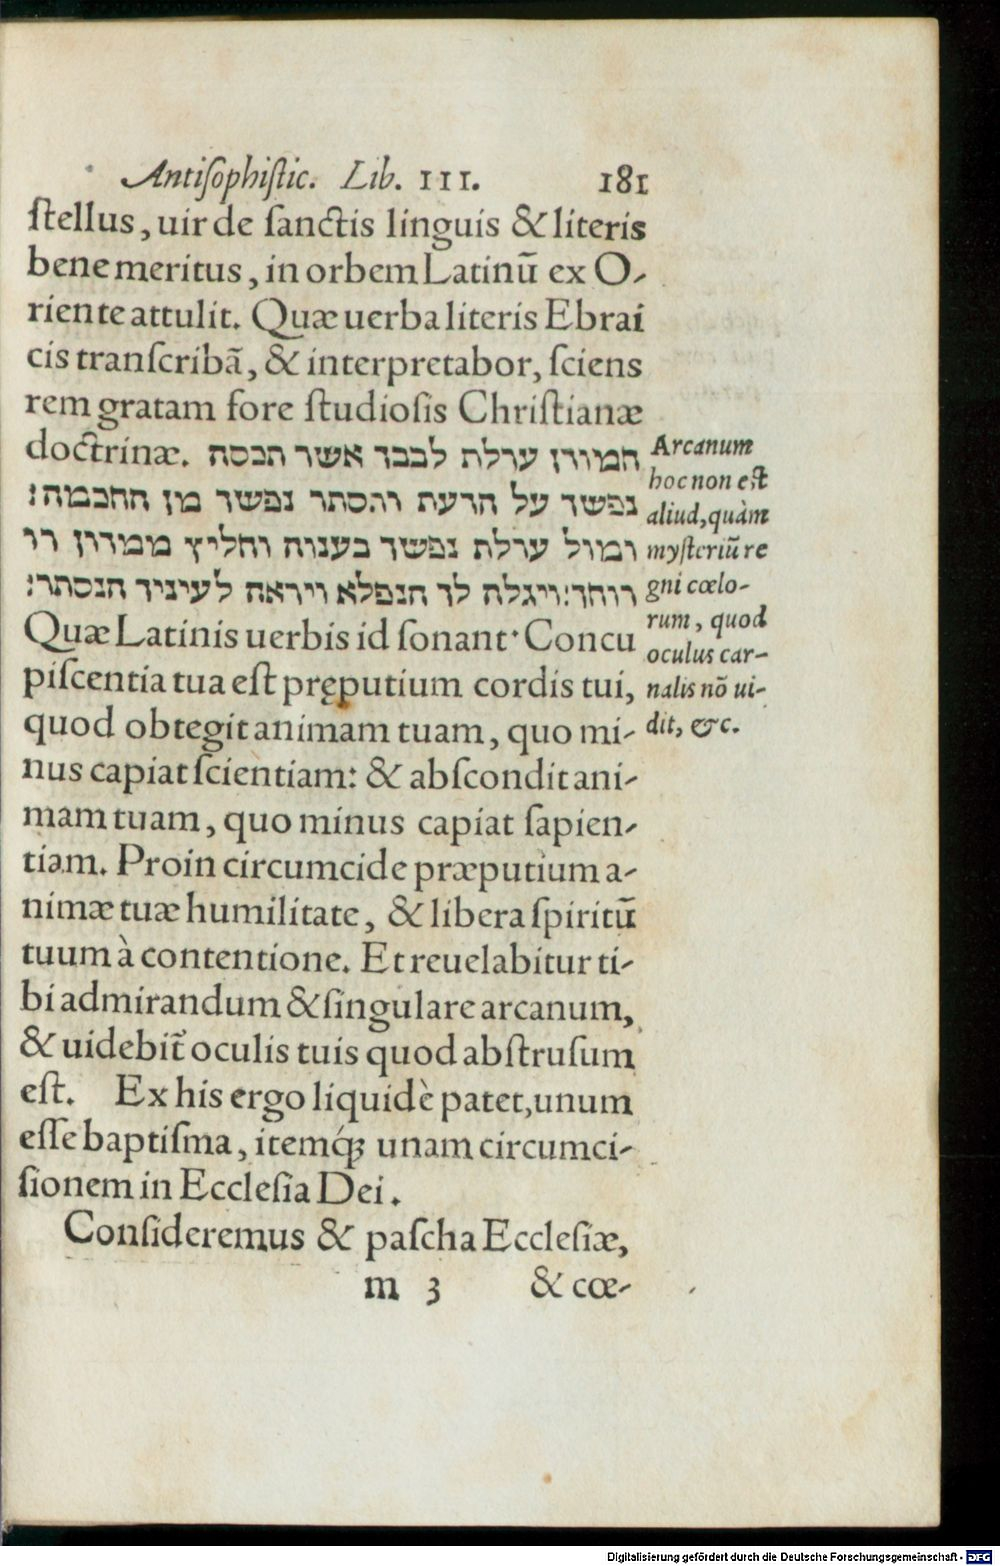 Antiſophiſtic. Lib. III. 181
ſtellus, uir de ſanctis linguis & literis
bene meritus, in orbem Latinũ ex O-
riente attulit. Quæ uerba literis Ebrai
cis tranſcribã, & interpretabor, ſciens
rem gratam fore ſtudioſis Chriſtianæ
doctrinæ. חמוורן ערלת לבבד אשר תבסה
נפשך על הדעת והסתר נפשך מן החכמה׃
ומול ערלת נפשך בענוה וחליץ ממדון רו
רוחך׃ויגלה לך הנפלא ויראה לעיניך הנסתר׃
Quæ Latinis uerbis id ſonant· Concu
piſcentia tua eſt pręputium cordis tui,
quod obtegit animam tuam, quo mi-
nus capiat ſcientiam: & abſcondit ani-
mam tuam, quo minus capiat ſapien-
tiam. Proin circumcide præputium a-
nimæ tuæ humilitate, & libera ſpiritũ
tuum à contentione. Et reuelabitur ti-
bi admirandum & ſingulare arcanum,
& uidebit᷑ oculis tuis quod abſtruſum
eſt. Ex his ergo liquidè patet, unum
eſſe baptiſma, itemq́; unam circumci-
ſionem in Eccleſia Dei.
Conſideremus & paſcha Eccleſiæ,
m 3 & cœ-
Arcanum
hoc non eſt
aliud, quàm
myſteriũ re
gni cœlo-
rum, quod
oculus car-
nalis nõ ui-
dit, &c.
Digitalisierung gefördert durch die Deutsche Forschungsgemeinschaft - DFG